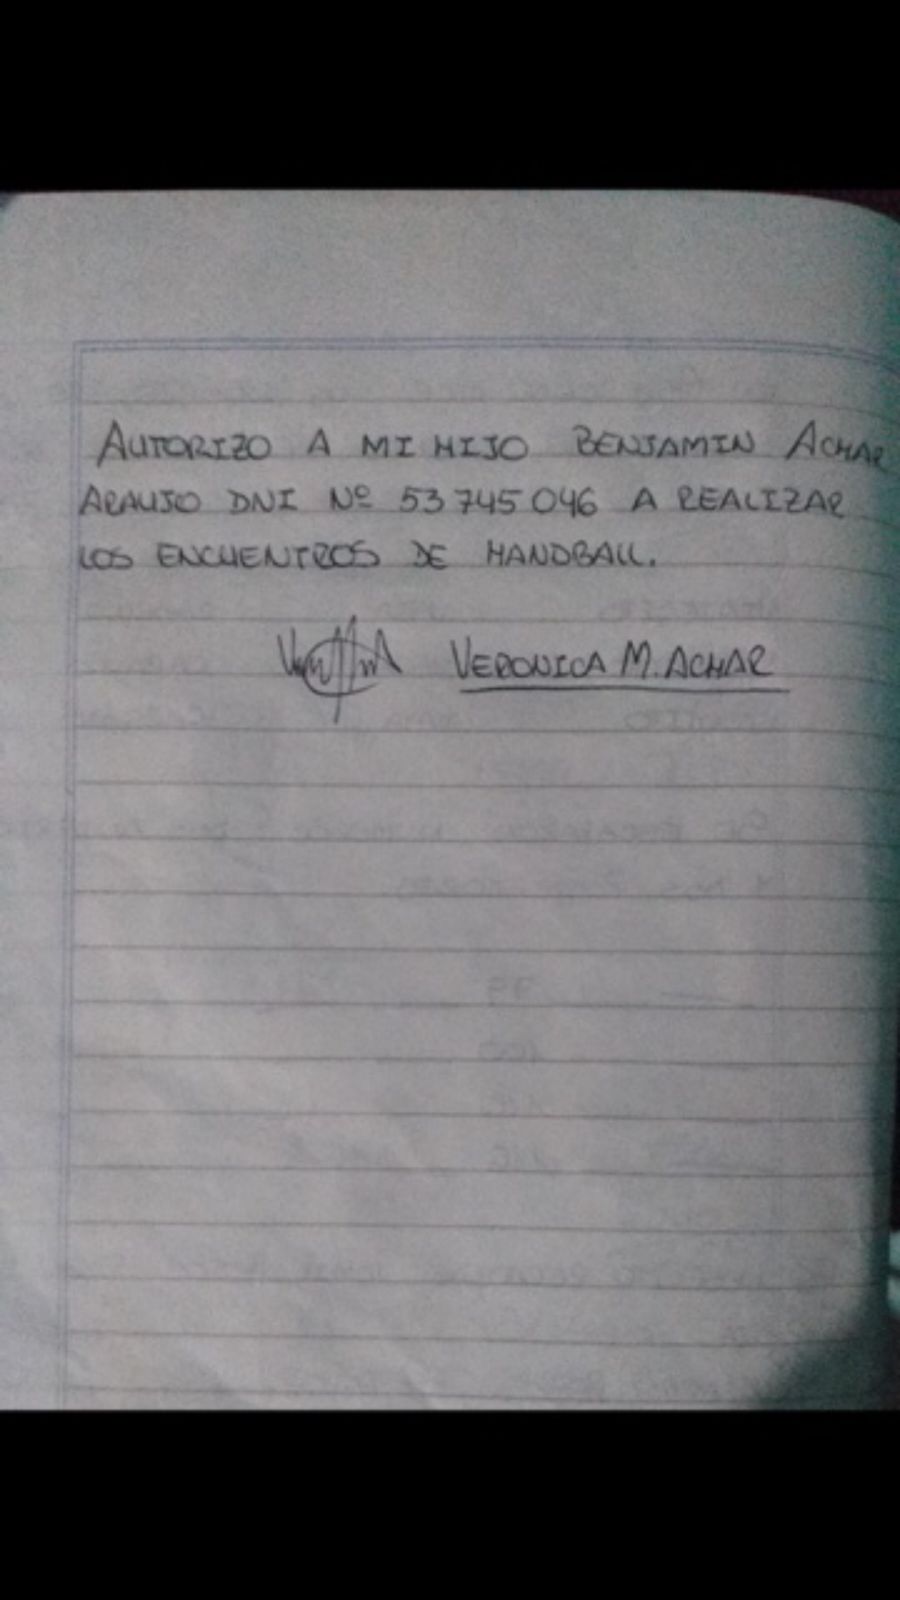 AUTORIZO A MI HIJO BENJAMIN ACHAR
ARAUJO DNI Nº 53 745 046 A REALIZAR
LOS ENCUENTROS DE HANDBALL.
VERONICA M. ACHAR